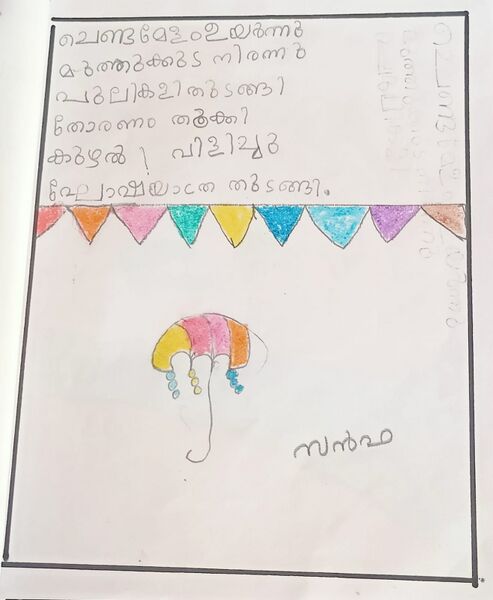 ചെണ്ടമേളം ഉയർന്നു
മുത്തുക്കുട നിരന്നു
പുലികളിതുടങ്ങി
തോരണം തൂക്കി
കുഴൽ വിളിച്ചു
ഘോഷയാത്ര തുടങ്ങി.
സൻഫ